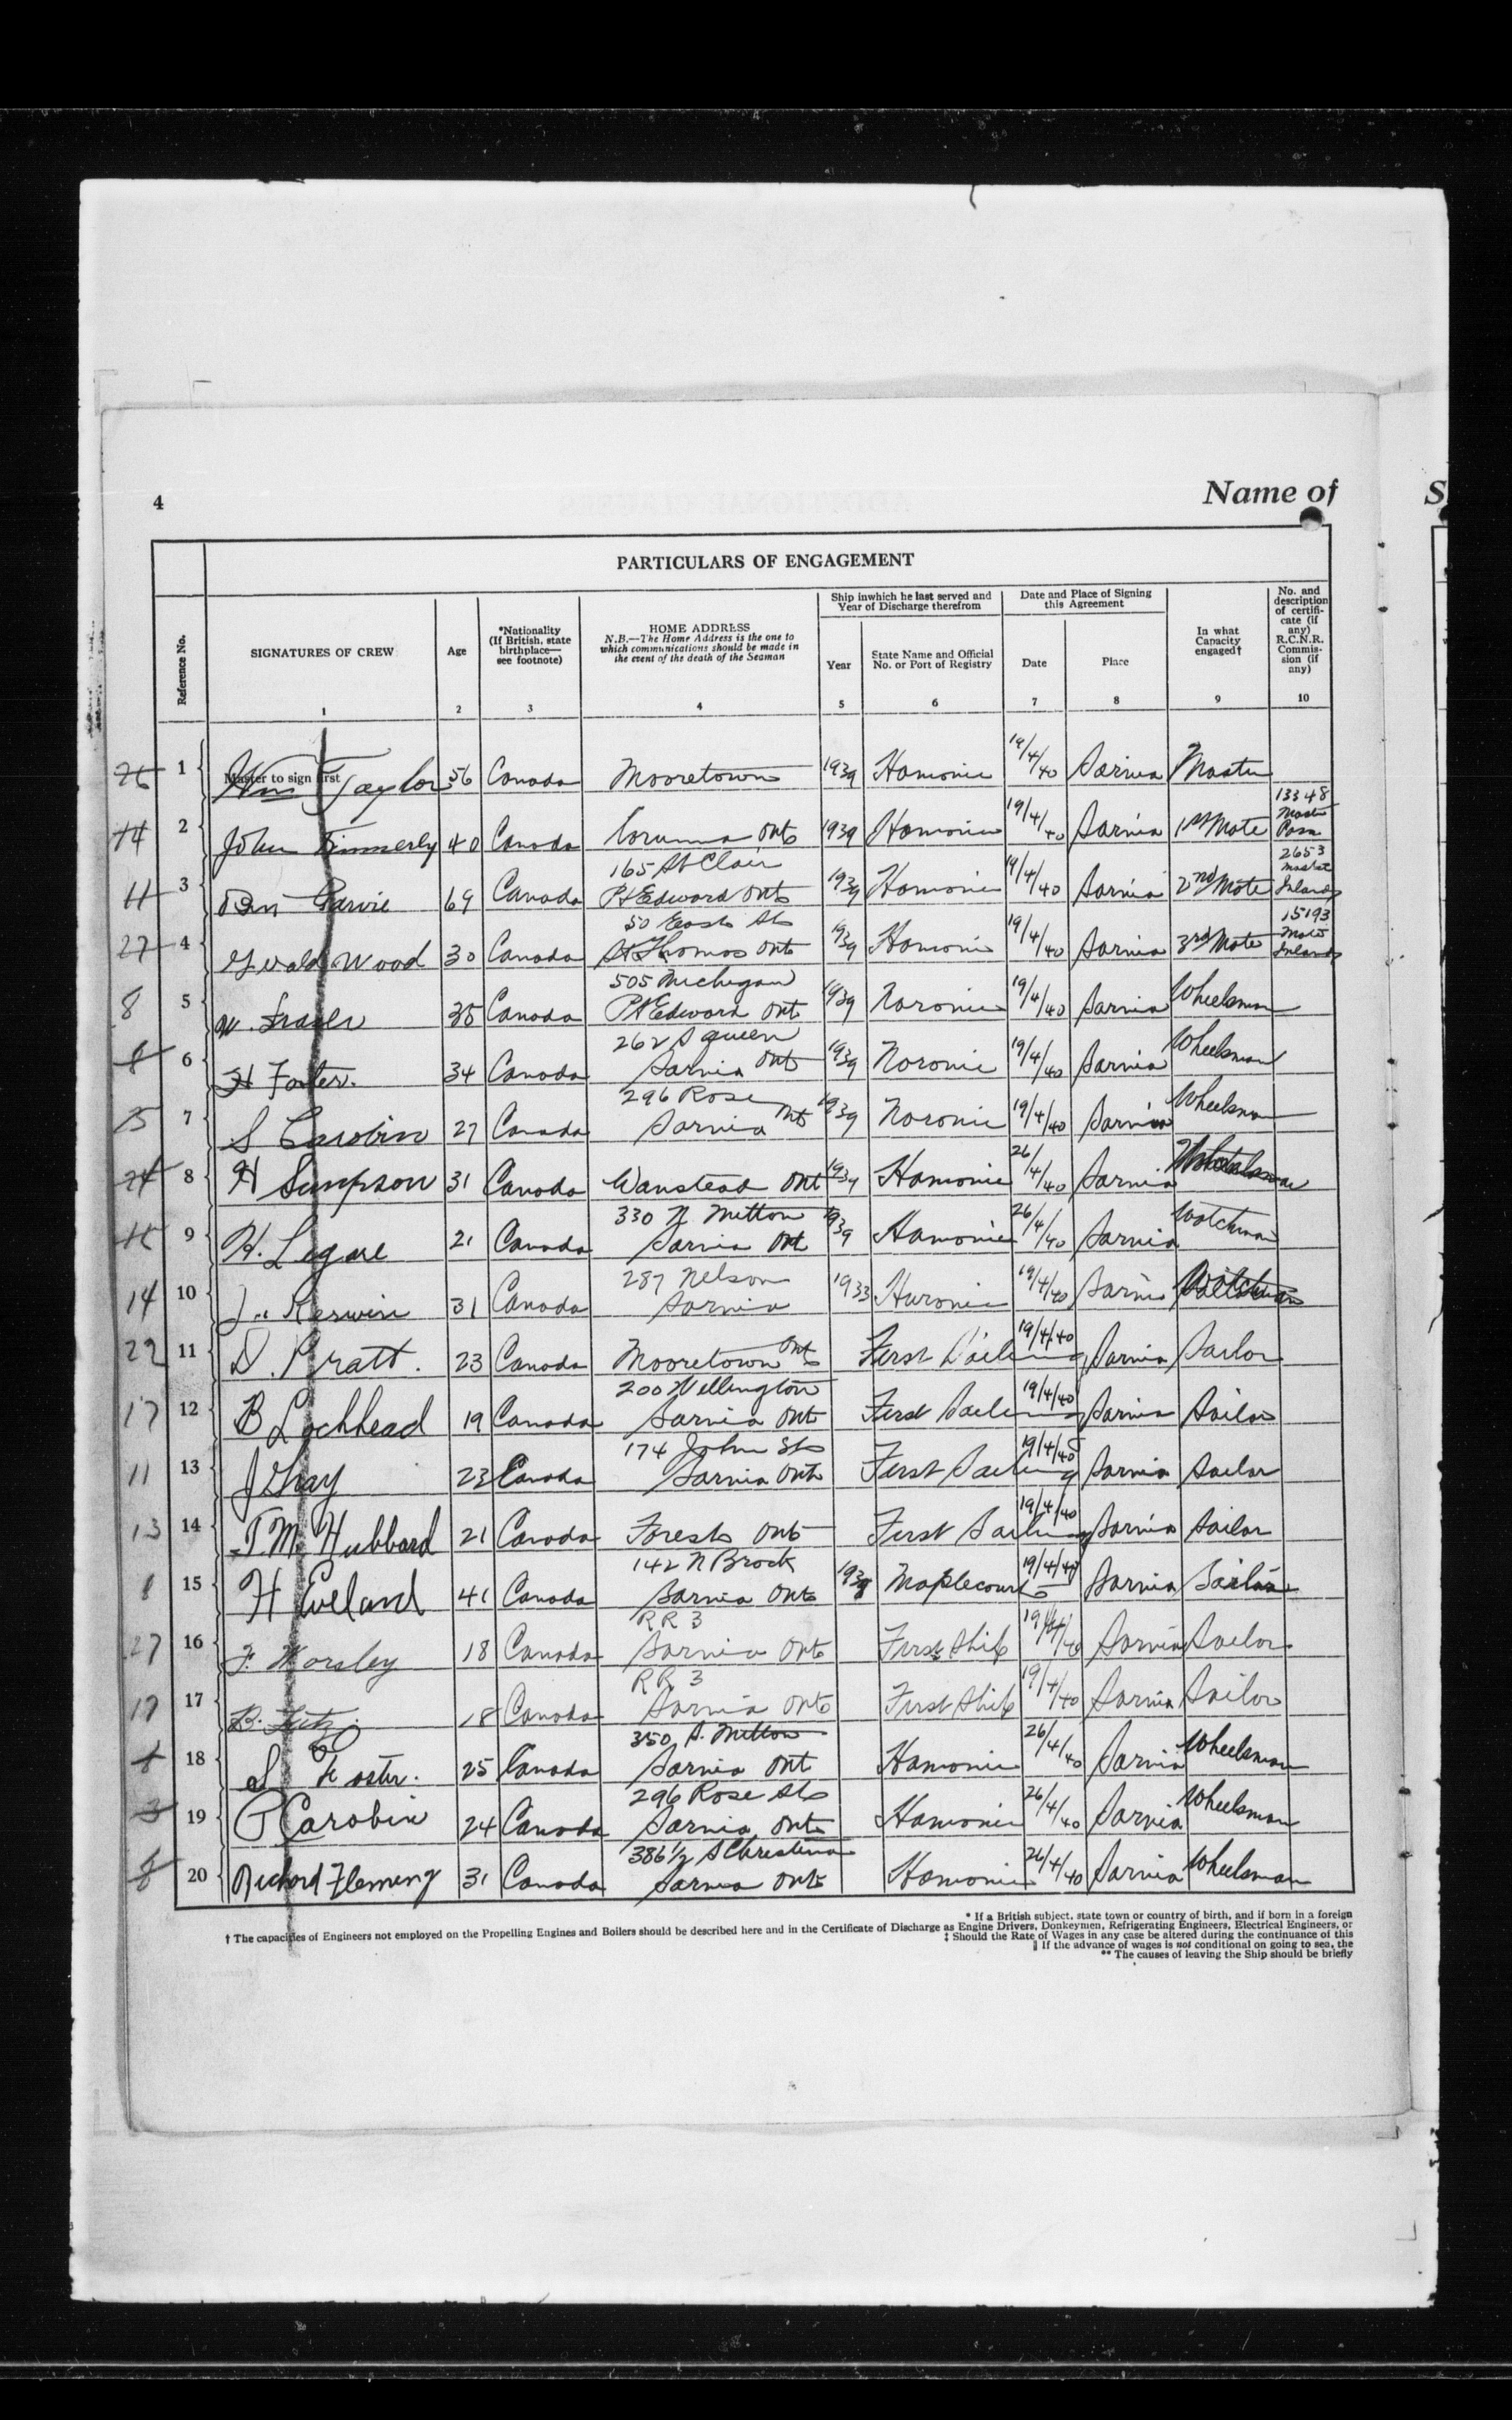 4
Name of
S
PARTICULARS OF ENGAGEMENT
Reference No.
SIGNATURES OF CREW
1
Age
2
*Nationality
(If British, state
birthplace—
see footnote)
3
HOME ADDRESS
N.B.—The Home Address is the one to
which communications should be made in
the event of the death of the Seaman
4
Ship inwhich he last served and
Year of Discharge therefrom
Year
5
State Name and Official
No. or Port of Registry
6
Date and Place of Signing
this Agreement
Date
7
Place
8
In what
Capacity
engaged†
9
No. and
description
of certifi-
cate (if
any)
R.C.N.R.
Commis-
sion (if
any)
10
Master to sign first
26 1 Wm Taylor 56 Canada Mooretown 1939 Hamonic 19/4/40 Sarnia Master
13348
14 2 John Kimmerly 40 Canada Corunna Ont 1939 Hamonic 19/4/40 Sarnia 1st Mate Master Pass
165 St Clair 2653
11 3 Dan Garvie 69 Canada Pt Edward Ont 1939 Hamonic 19/4/40 Sarnia 2nd Mate Master Inland
50 East St 15193
27 4 Gerald Wood 30 Canada St Thomas Ont 1939 Hamonic 19/4/40 Sarnia 3rd Mate Mate Inland
505 Michigan
8 5 W. Fraser 38 Canada Pt Edward Ont 1939 Noronic 19/4/40 Sarnia Wheelsman
262 S Queen
8 6 H Foster. 34 Canada Sarnia Ont 1939 Noronic 19/4/40 Sarnia Wheelsman
296 Rose
7 S Carobin 27 Canada Sarnia Ont 1939 Noronic 19/4/40 Sarnia Wheelsman
24 8 H Simpson 31 Canada Wanstead Ont 1939 Hamonic 26/4/40 Sarnia
330 N Mitton
9 H. Legare 21 Canada Sarnia Ont 1939 Hamonic 26/4/40 Sarnia Watchman
287 Nelson
14 10 J. Kerwin 31 Canada Sarnia 1933 Huronic 19/4/40 Sarnia Watchman
22 11 D. Pratt. 23 Canada Mooretown Ont First Sailing 19/4/40 Sarnia Sailor
200 Wellington
17 12 B Lochhead 19 Canada Sarnia Ont First Sailing 19/4/40 Sarnia Sailor
174 John St
11 13 J Gray 23 Canada Sarnia Ont First Sailing 19/4/40 Sarnia Sailor
13 14 T. M. Hubbard 21 Canada Forest Ont First Sailing 19/4/40 Sarnia Sailor
142 N Brock
1 15 H Eveland 41 Canada Sarnia Ont 1938 Maplecourt 19/4/40 Sarnia Sailor
RR 3
27 16 F. Worsley 18 Canada Sarnia Ont First Ship 19/4/40 Sarnia Sailor
RR 3
17 17 B. Lutz 18 Canada Sarnia Ont First Ship 19/4/40 Sarnia Sailor
350 S. Mitton
8 18 S Foster. 25 Canada Sarnia Ont Hamonic 26/4/40 Sarnia Wheelsman
296 Rose St
3 19 P Carobin 24 Canada Sarnia Ont Hamonic 26/4/40 Sarnia Wheelsman
386 1/2 S Christina
8 20 Richard Fleming 31 Canada Sarnia Ont Hamonic 26/4/40 Sarnia Wheelsman
* If a British subject, state town or country of birth, and if born in a foreign
† The capacities of Engineers not employed on the Propelling Engines and Boilers should be described here and in the Certificate of Discharge as Engine Drivers, Donkeymen, Refrigerating Engineers, Electrical Engineers, or
‡ Should the Rate of Wages in any case be altered during the continuance of this
‖ If the advance of wages is not conditional on going to sea, the
** The causes of leaving the Ship should be briefly